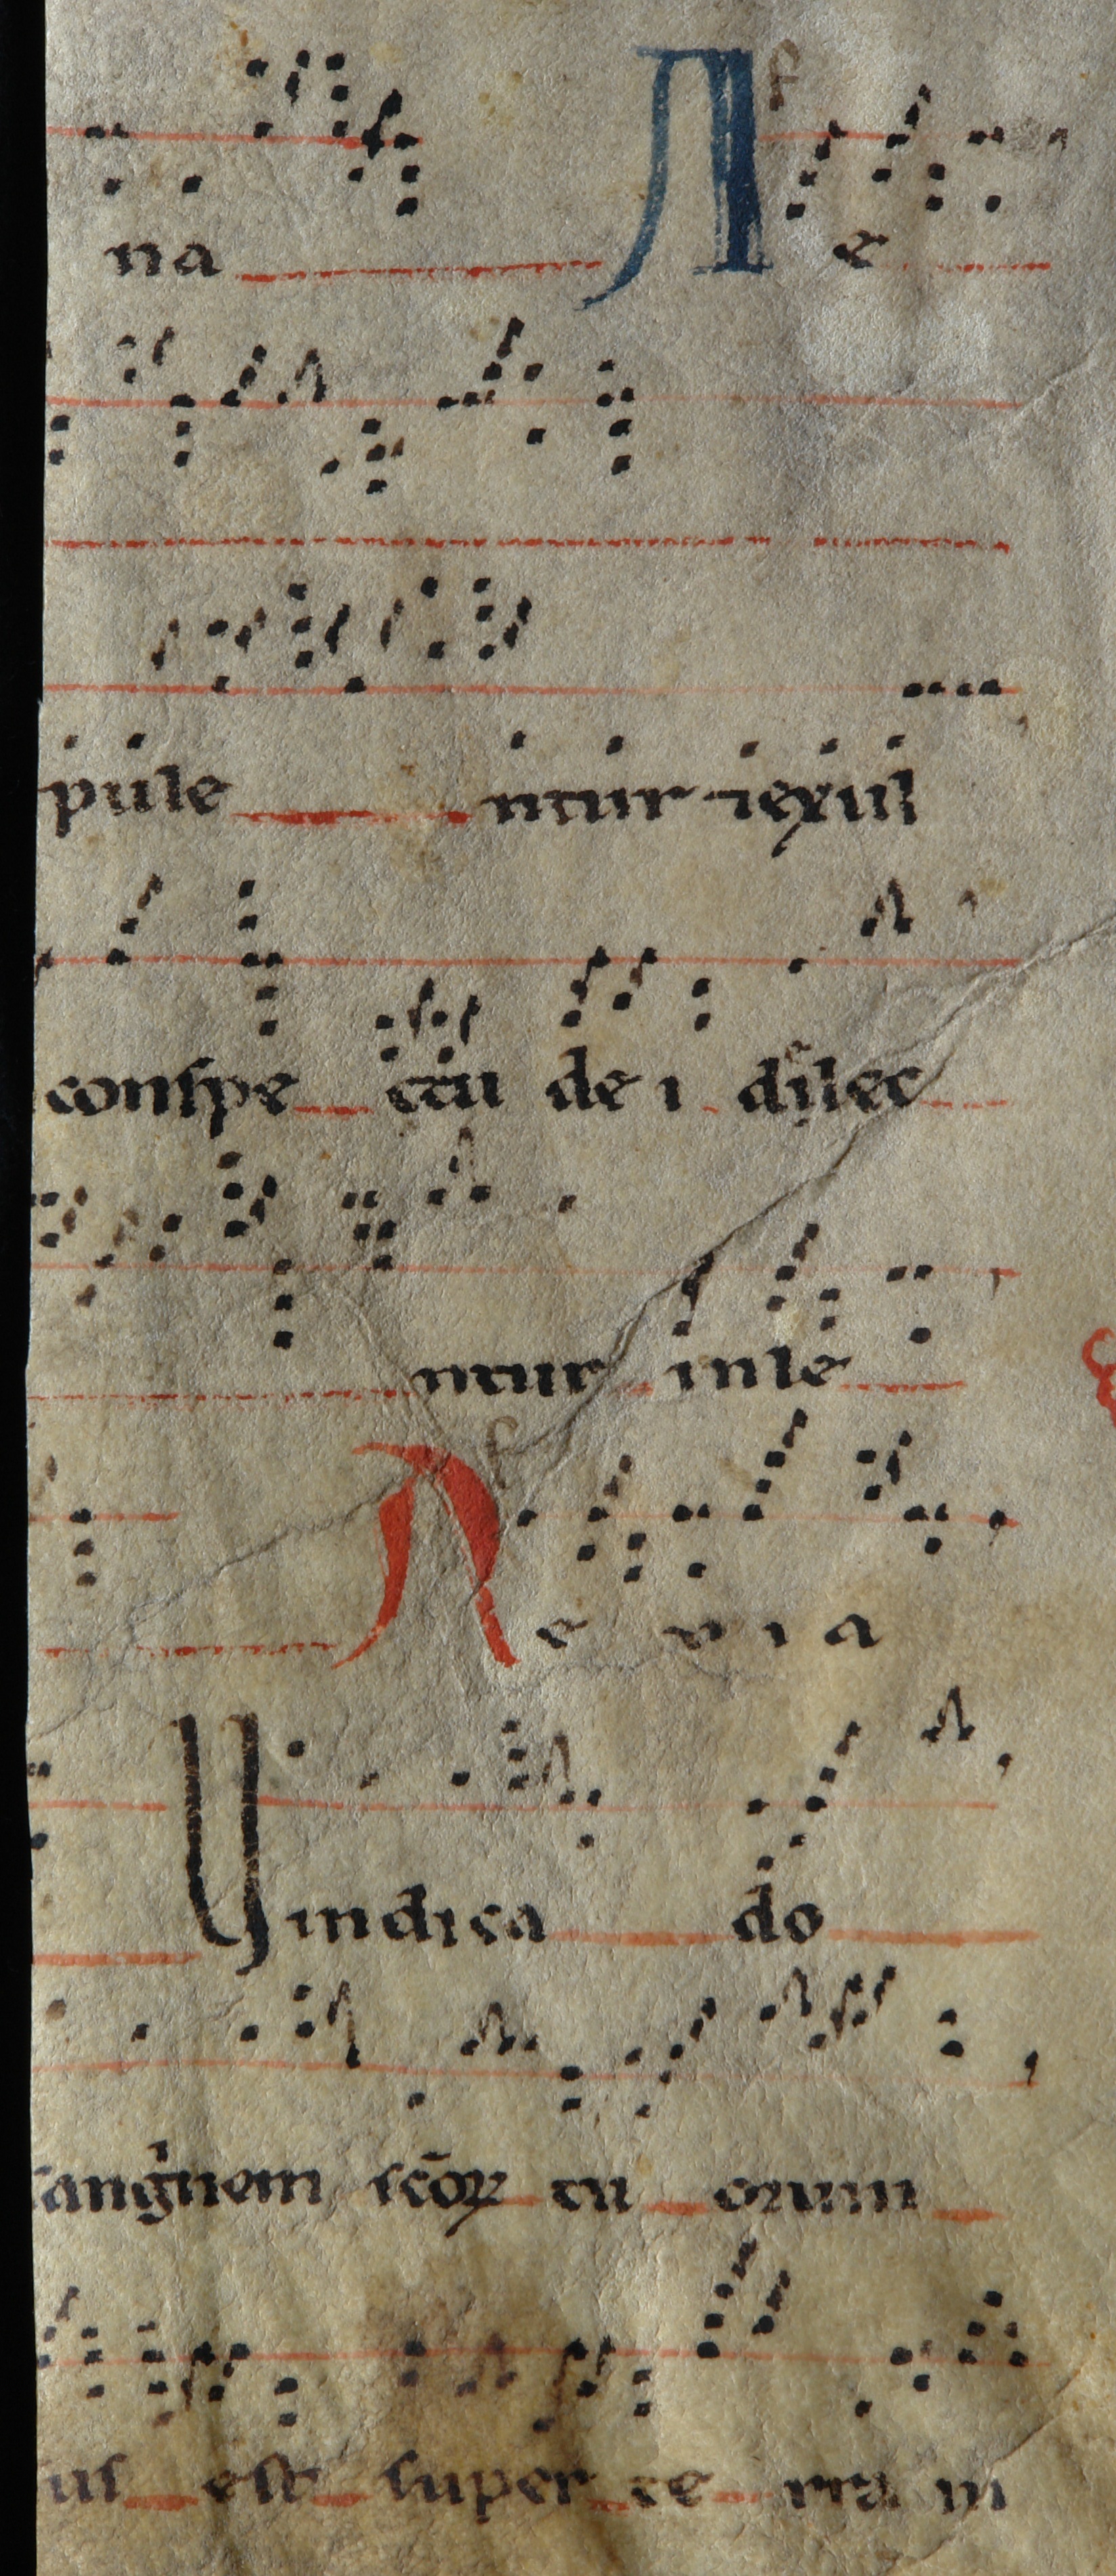 na A f e
pule ntur ⁊ exul
conspe ctu de i dilec
ntur in le
A f e v i a
Vindica do
sanguinem scōꝝ tu orum
us est super te rra in